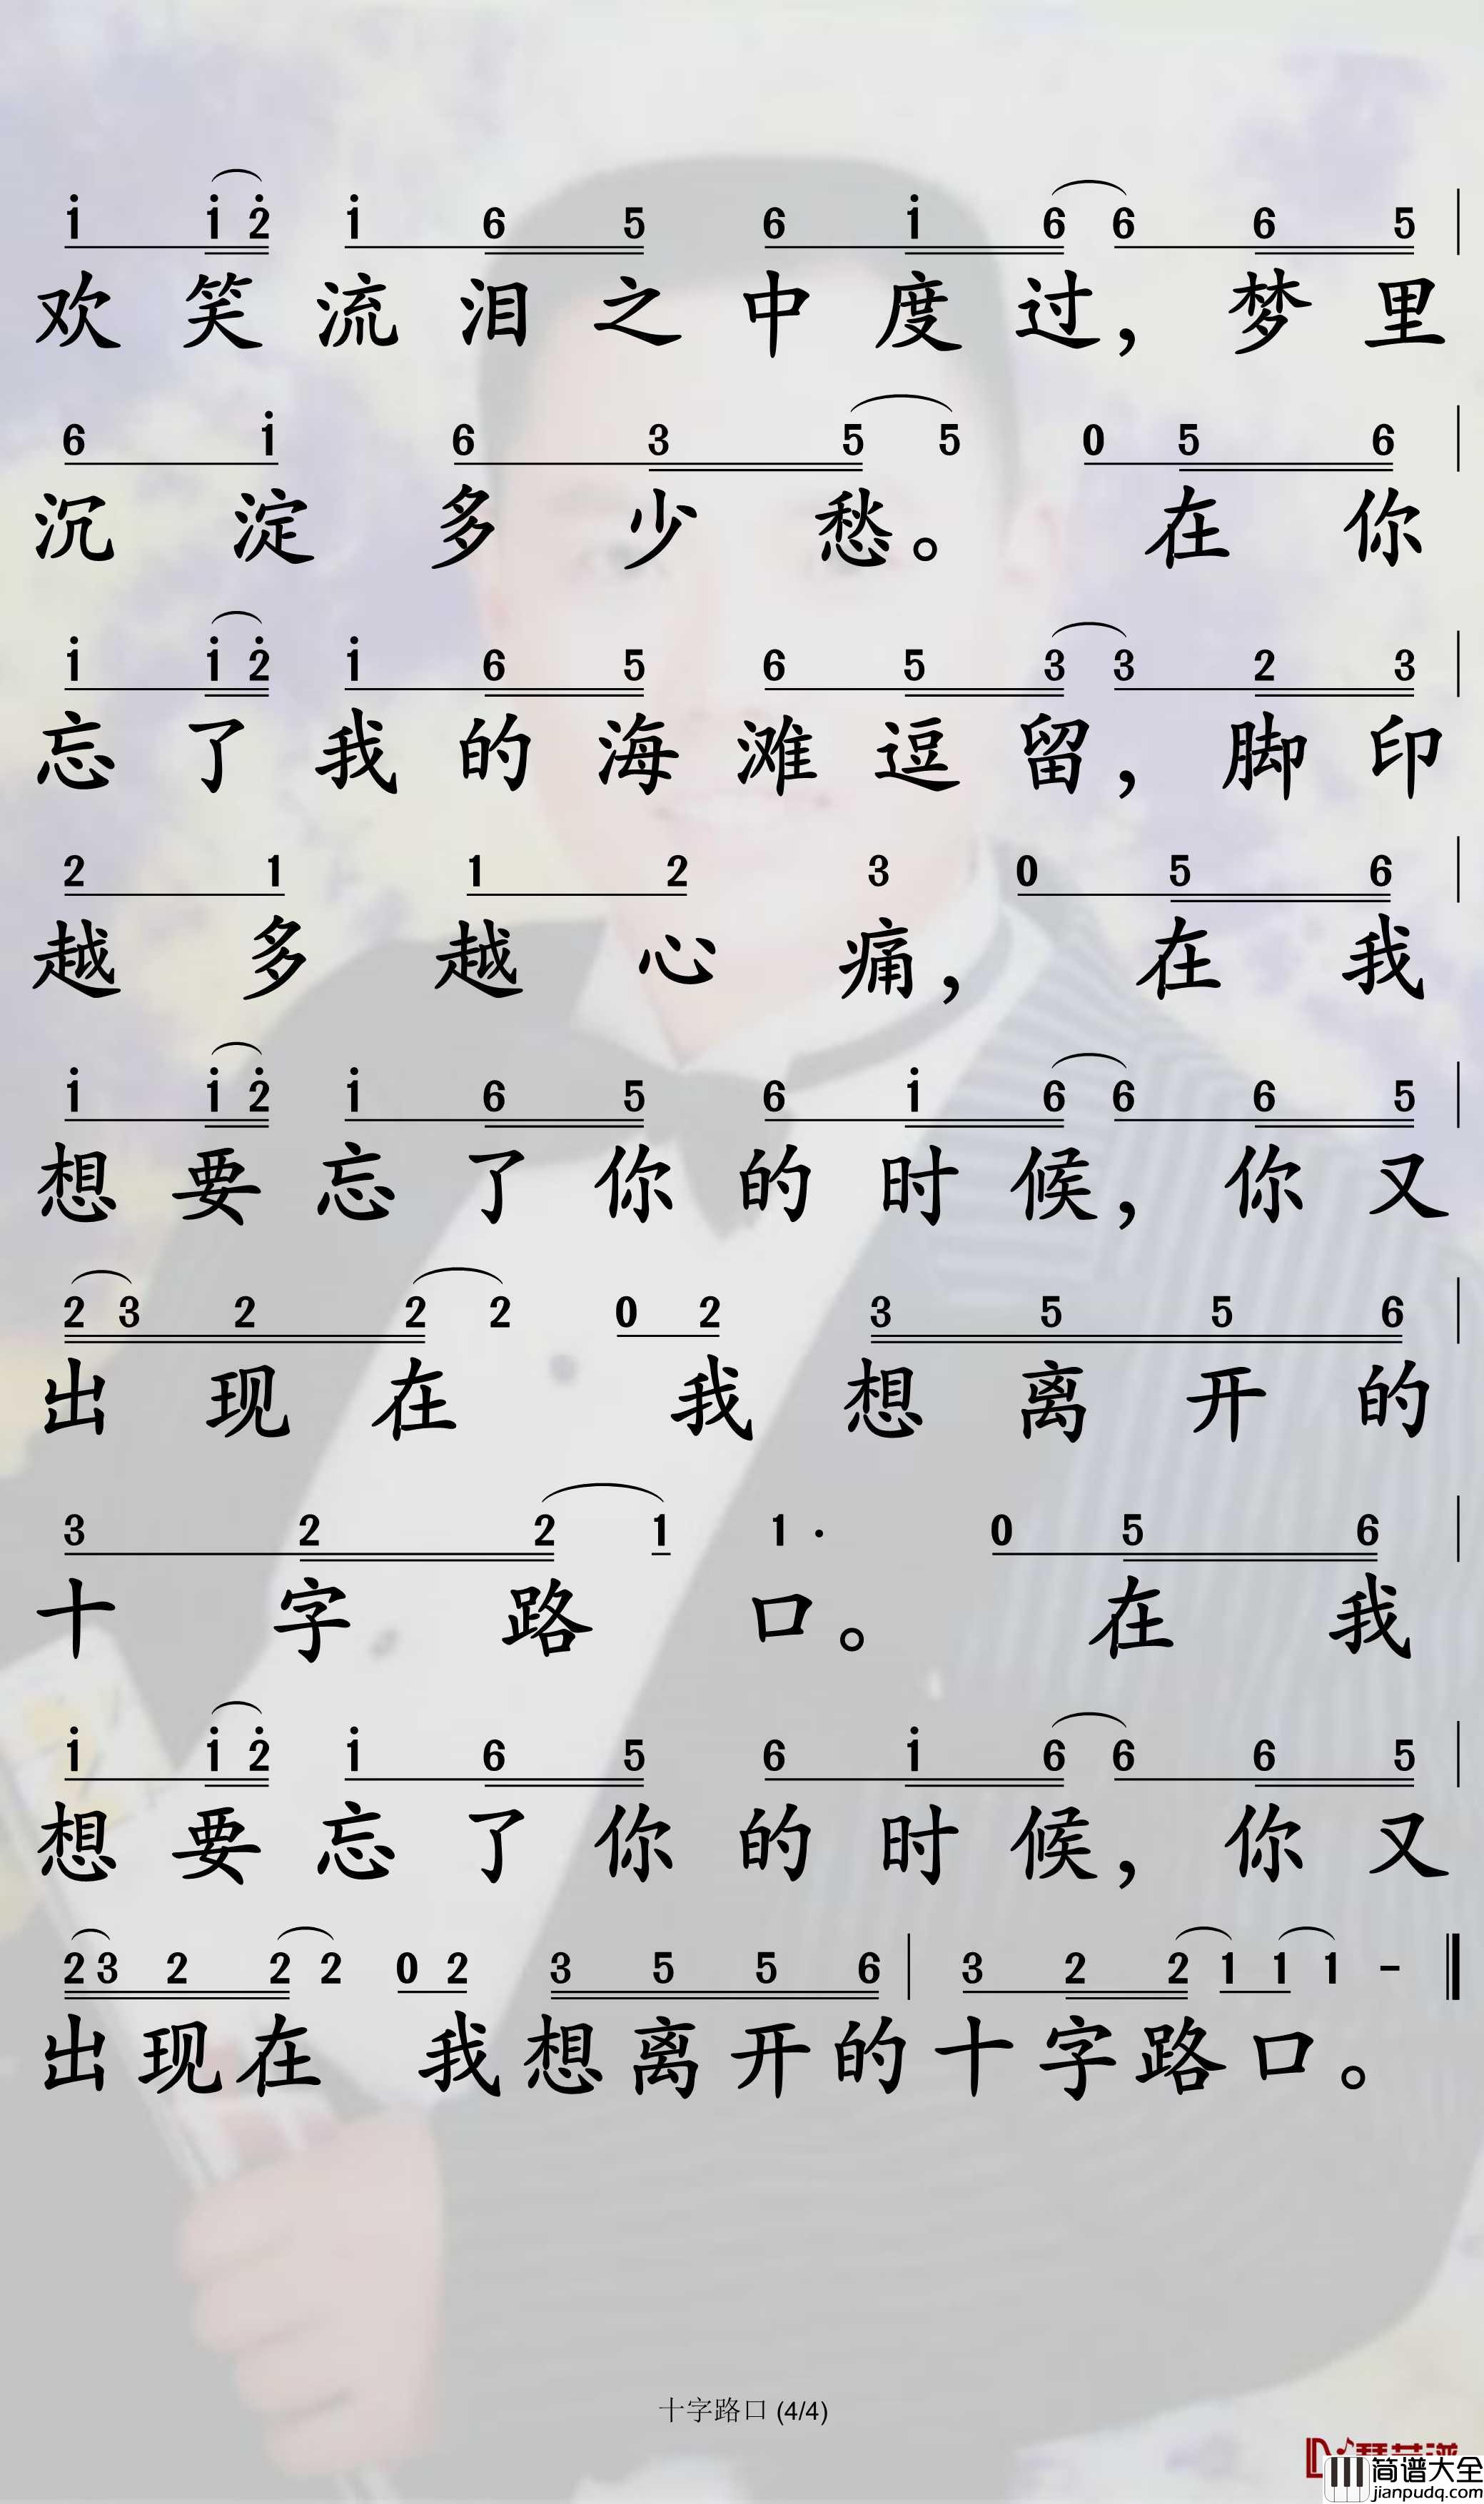 i i 2 i 6 5 6 i 6 6 6 5
欢笑流泪之中度过，梦里
6 i 6 3 5 5 0 5 6
沉淀多少愁。 在你
i i 2 i 6 5 6 5 3 3 2 3
忘了我的海滩逗留，脚印
2 1 1 2 3 0 5 6
越多越心痛， 在我
i i 2 i 6 5 6 i 6 6 6 5
想要忘了你的时候，你又
2 3 2 2 2 0 2 3 5 5 6
出现在 我想离开的
3 2 2 1 1· 0 5 6
十字路口。 在我
i i 2 i 6 5 6 i 6 6 6 5
想要忘了你的时候，你又
2 3 2 2 2 0 2 3 5 5 6 3 2 2 1 1 1 -
出现在 我想离开的十字路口。
十字路口 (4/4)
简谱大全
jianpudq.com